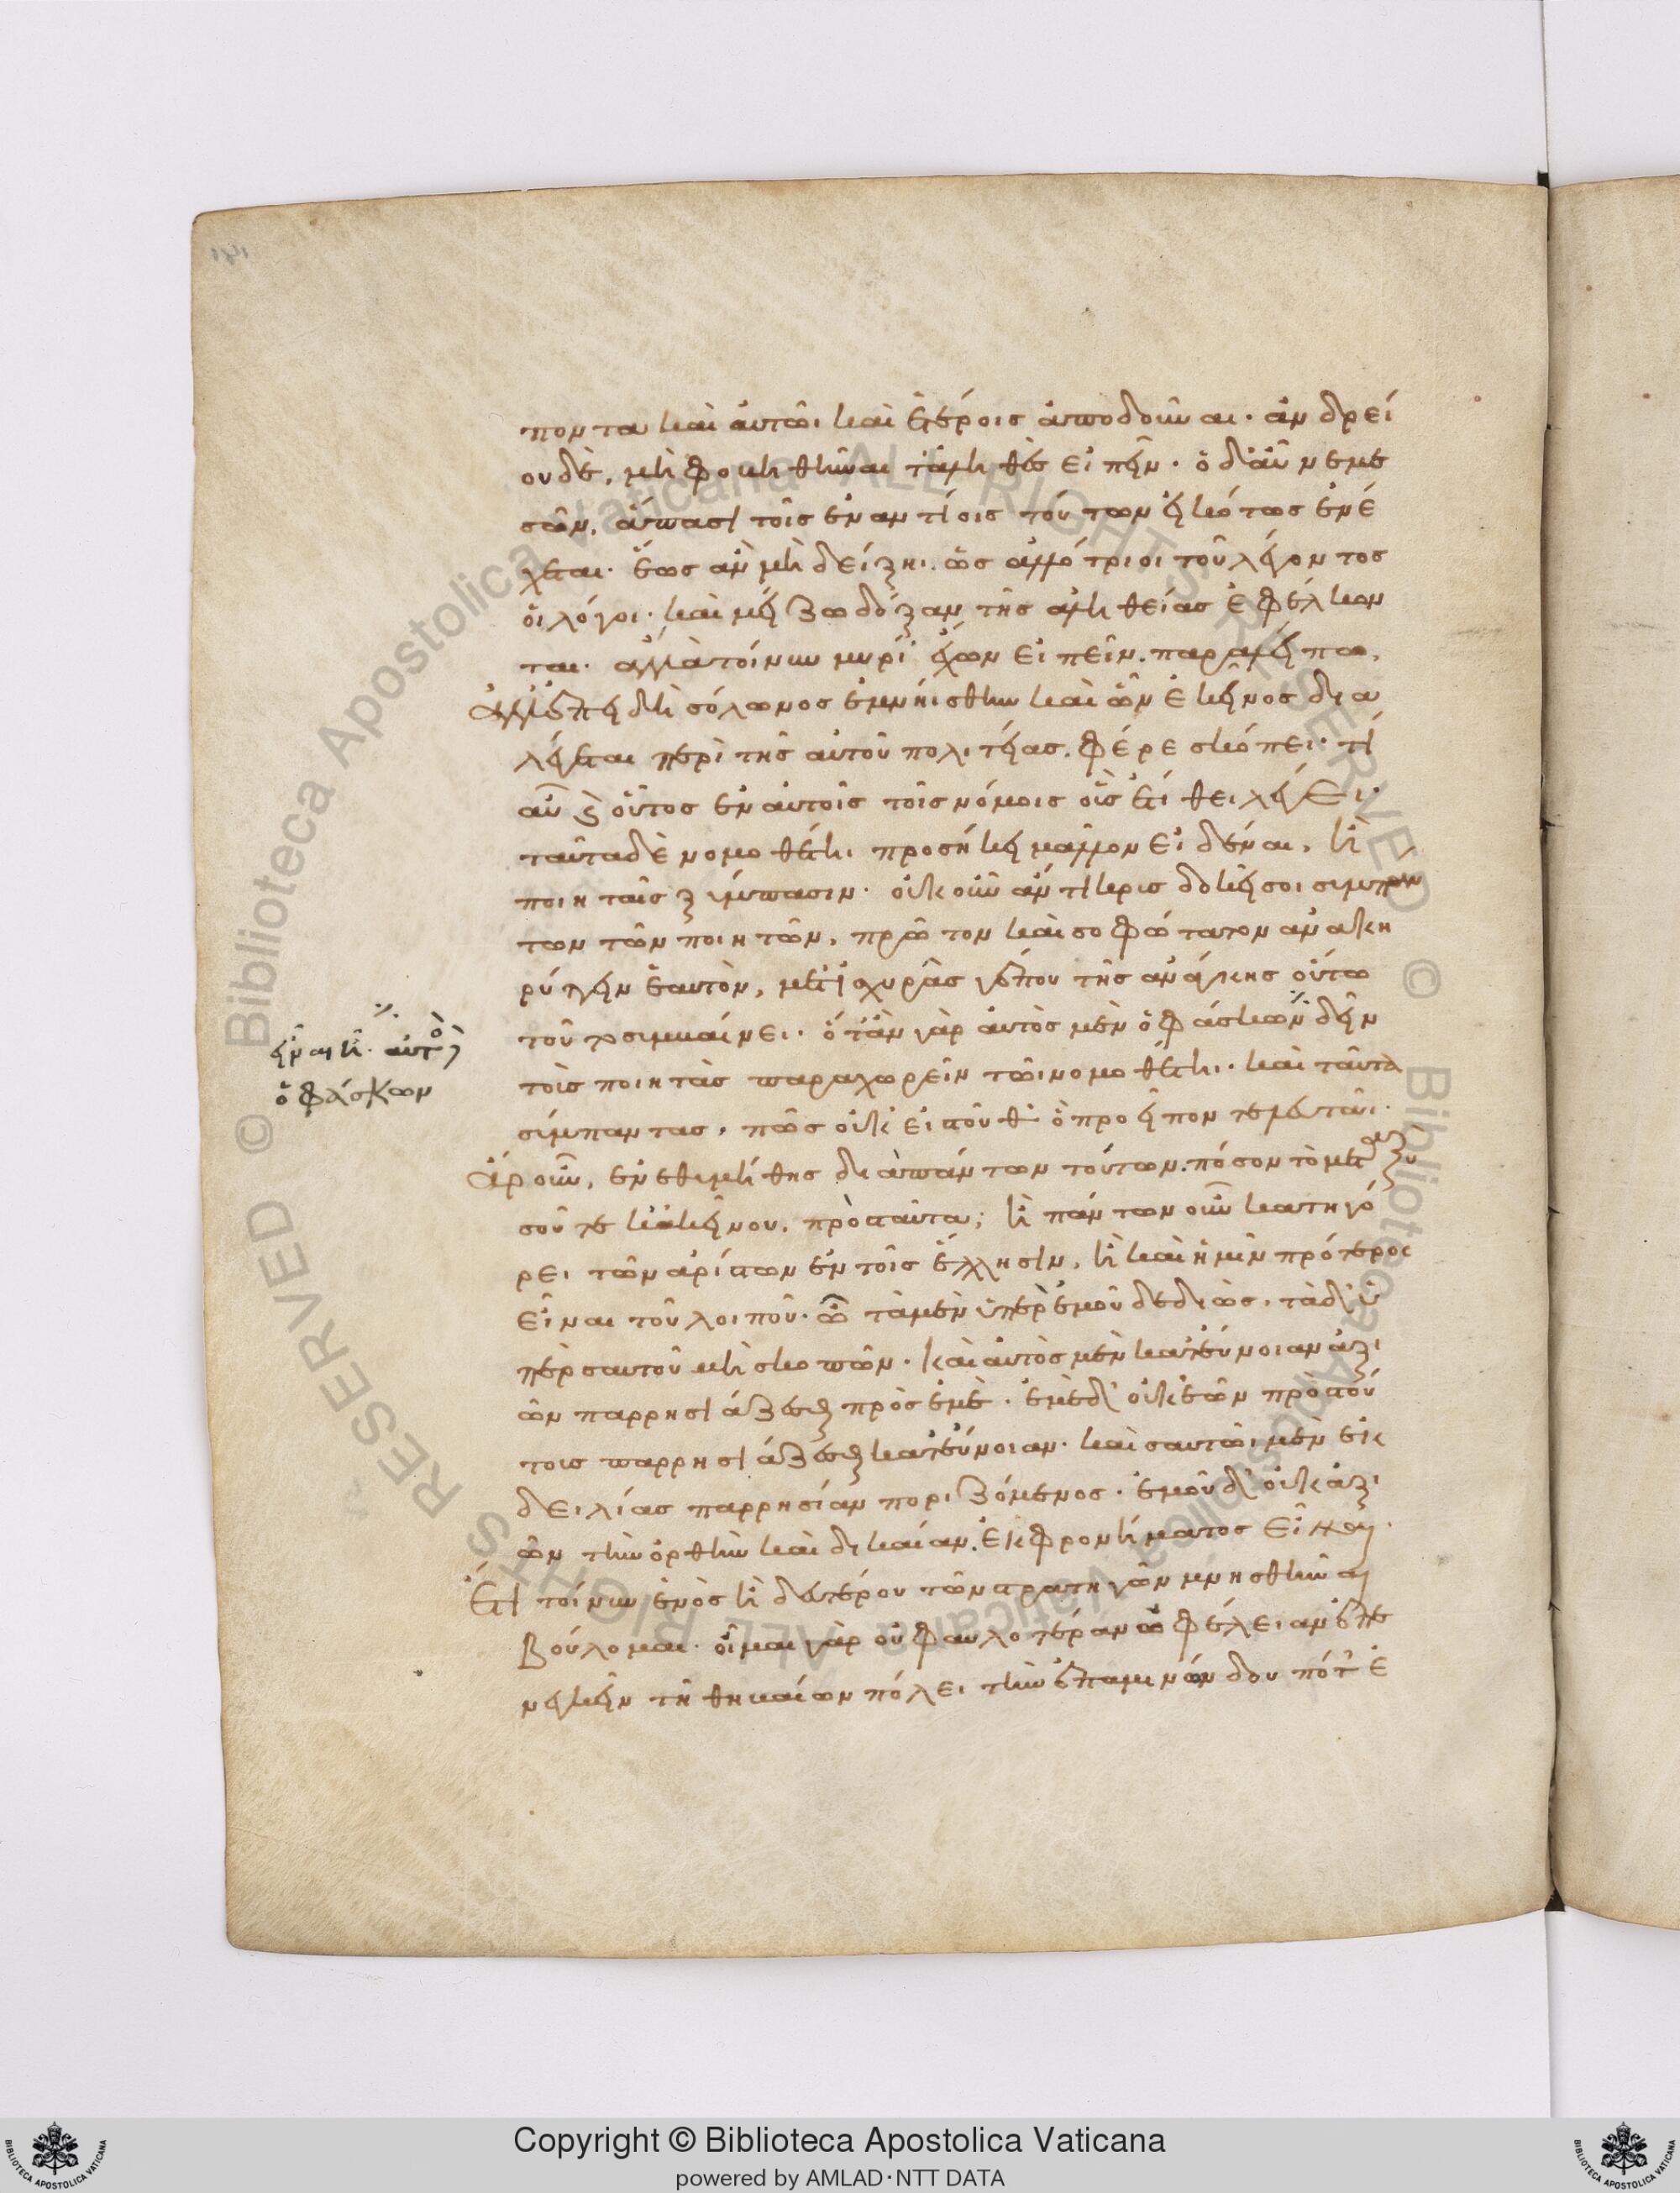 πον τα καὶ αὐτῶι καὶ ἑτέροις ἀποδοῦναι· ἀνδρεί
ου δὲ, μὴ φοβηθῆναι τἀληθὲς εἰπεῖν· ὁ δ' ἂν νεμε
σῶν, ἅπασι τοῖς ἐναντίοις τούτων εἰκότως ἐνέ
χεται· ἕως ἂν μὴ δείξηι. ὡς ἀλλότριοι τοῦ λέγοντος
οἱ λόγοι· καὶ μείζω δόξαν τῆς ἀληθείας ἐφέλκον
ται· ἀλλὰ τοίνυν μυρί' ἔχων εἰπεῖν. παραλείπω,
ἀλλ' ἐπεὶ δὴ σόλωνος ἐμνήσθην καὶ ὧν ἐκεῖνος δια
λέγεται περὶ τῆς αὐτοῦ πολιτείας. φέρε σκόπει· τί
αὖ καὶ οὗτος ἐν αὐτοῖς τοῖς νόμοις οἷς ἐτίθει λέγει·
ταῦτα δὲ νομοθέτηι προσήκει μᾶλλον εἰδέναι, ἢ
ποιηταῖς ξύμπασιν· οὐκοῦν ἄντικρυς δοκεῖ σοι συμπάν
των τῶν ποιητῶν, πρῶτον καὶ σοφώτατον ἀνακη
ρύττειν ἑαυτὸν, μετ' ἰσχυρᾶς γέ που τῆς ἀνάγκης οὕτω
τοῦτο συμβαίνει· ὅταν γὰρ αὐτὸς μὲν ὁ φάσκων δεῖν
τοὺς ποιητὰς παραχωρεῖν τῶι νομοθέτηι· καὶ ταῦτα
σύμπαντας, πῶς οὐκ εἰς τοῦθ' ὃ προεῖπον τελευτᾶι·
ἆρ' οὖν, ἐνεθυμήθης δι' ἁπάντων τούτων. πόσον τὸ μεταξὺ
σοῦ τε κἀκείνου. πρὸς ταῦτα; ἢ πάντων οὖν κατηγό
ρει τῶν ἀρίστων ἐν τοῖς ἕλλησιν, ἢ καὶ ἡμῖν πρότερος
εἶναι τοῦ λοιποῦ· ὦ τὰ μὲν ὑπὲρ ἐμοῦ δεδιὼς. τὰ δ' ὑ
πὲρ σαυτοῦ μὴ σκοπῶν. καὶ αὐτὸς μὲν κατ' εὔνοιαν ἀξι
ῶν παρρησιάζεσθαι πρὸς ἐμὲ· ἐμὲ δ' οὐκ ἐῶν πρὸς τού
τους παρρησιάζεσθαι κατ' εὔνοιαν· καὶ σαυτῶι μὲν ἐκ
δειλίας παρρησίαν ποριζόμενος· ἐμοῦ δ' οὐκ ἀξι
ῶν τὴν ὀρθὴν καὶ δικαίαν. ἐκ φρονήματος εἶναι·
ἔτι τοίνυν ἑνὸς ἢ δευτέρου τῶν στρατηγῶν μνησθῆναι
βούλομαι· οἶμαι γὰρ οὐ φαυλοτέραν ὠφέλειαν ἐπε
νεγκεῖν τῆ θηβαίων πόλει τὴν ἐπαμινώνδου πότ' ἐ
εἶναι ἢ· αὐτὸς
ὁ φάσκων